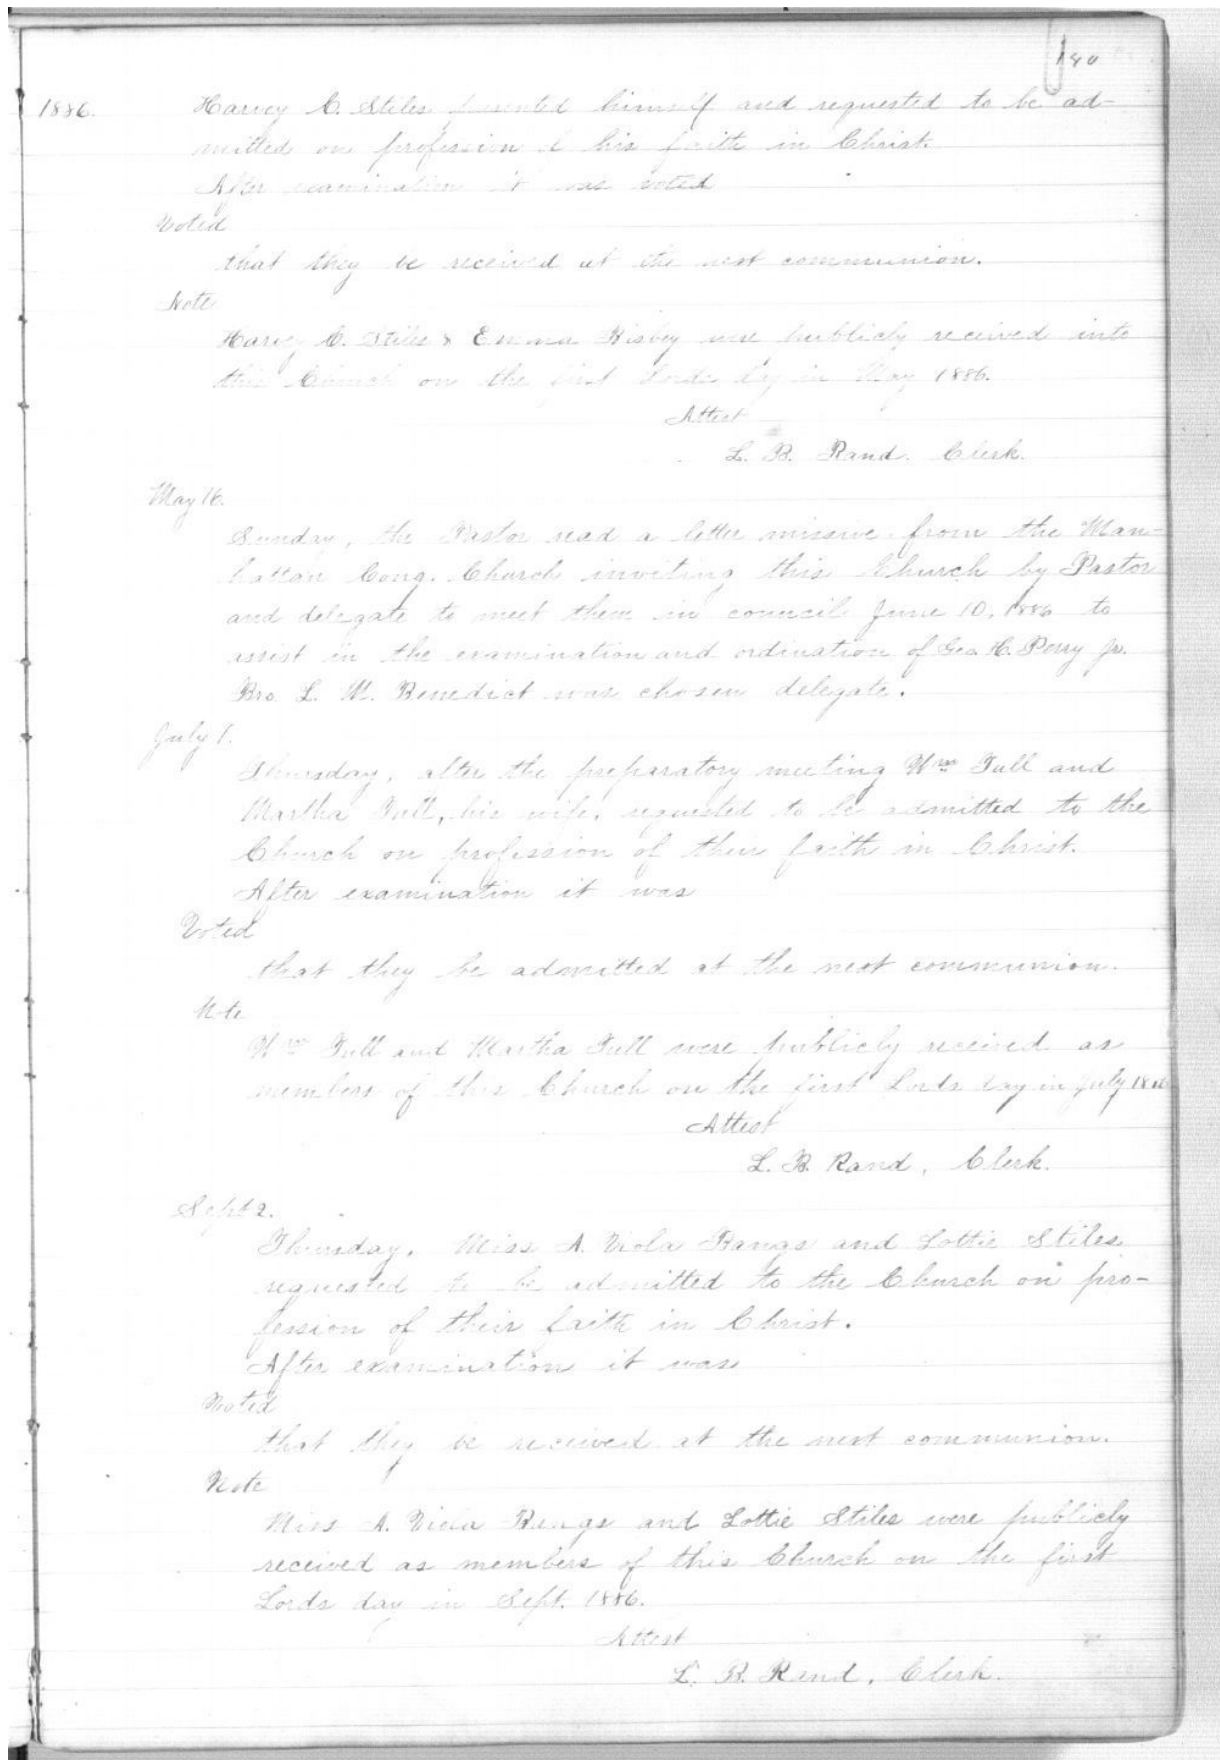 180
1886. Harvey C. Stiles presented himself and requested to be ad-
mitted on profession of his faith in Christ.
After examination it was voted
Voted
that they be received at the next communion.
Note
Harvey C. Stiles & Emma Risbey were publicly received into
this Church on the first Lords day in May 1886.
Attest
L. B. Rand. Clerk.
May 16.
Sunday, the Pastor read a letter missive from the Man-
hattan Cong. Church inviting this Church by Pastor
and delegate to meet them in council June 10, 1886 to
assist in the examination and ordination of Geo. H. Perry Jr.
Bro. L. W. Benedict was chosen delegate.
July 1.
Thursday, after the preparatory meeting Wm Tull and
Martha Tull, his wife, requested to be admitted to the
Church on profession of their faith in Christ.
After examination it was
Voted
that they be admitted at the next communion.
Note
Wm Tull and Martha Tull were publicly received as
members of this Church on the first Lords day in July 1886
Attest
L. B. Rand, Clerk.
Sept 2.
Thursday, Miss A. Viola Bangs and Lottie Stiles
requested to be admitted to the Church on pro-
fession of their faith in Christ.
After examination it was
Voted
that they be received at the next communion.
Note
Miss A. Viola Bangs and Lottie Stiles were publicly
received as members of this Church on the first
Lords day in Sept. 1886.
Attest
L. B. Rand, Clerk.